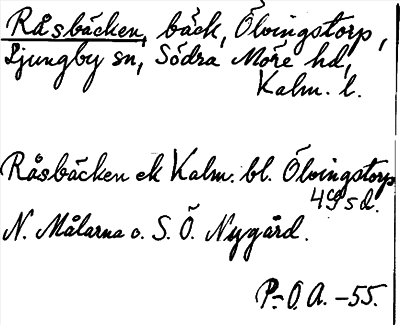 Råsbäcken, bäck, Ölvingstorp,
Ljungby sn, Södra Möre hd,
Kalm. l.
Råsbäcken ek Kalm. bl. Ölvingstorp
4 G 5 d.
N. Målarna o. S. Ö. Nygård.
P.-O. A. -55.